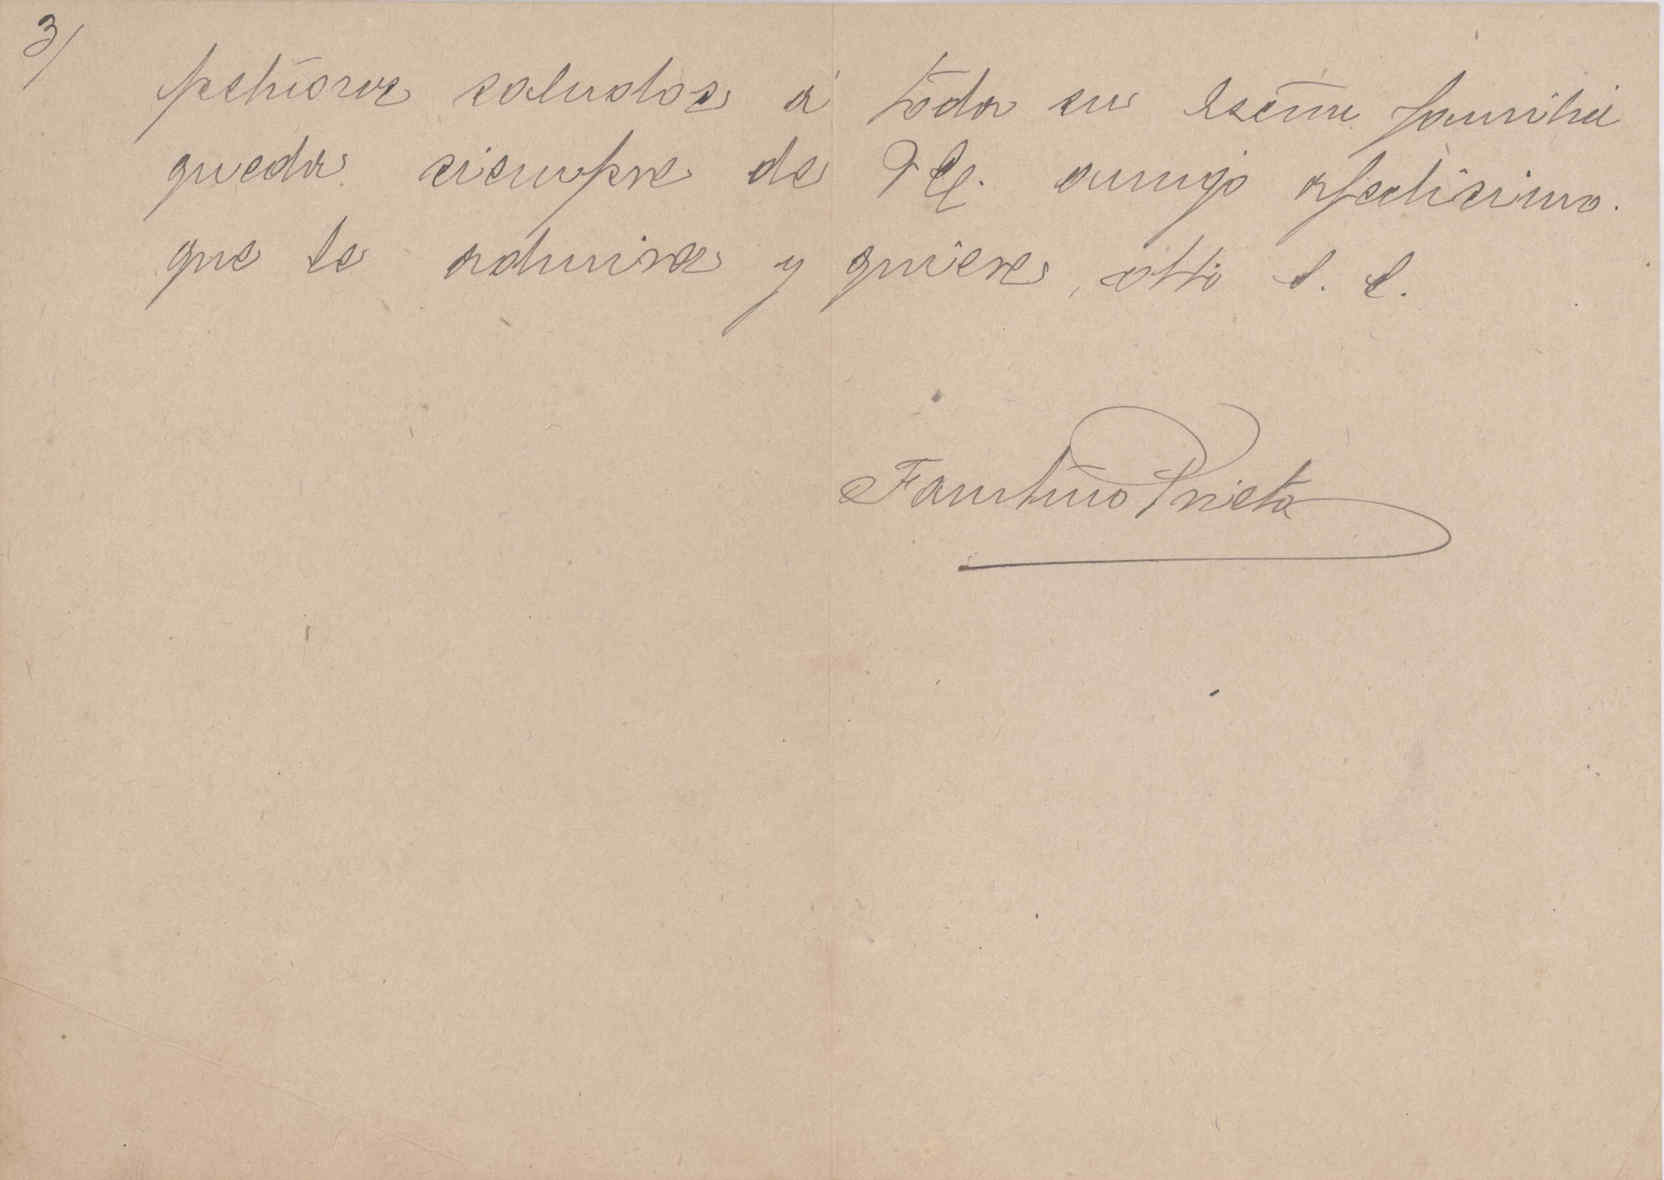 3/
saludos á toda su Exma familia
queda siempre de Vd. amigo afectísimo.
que le admira y quiere, atto S. S.
Faustino Prieto